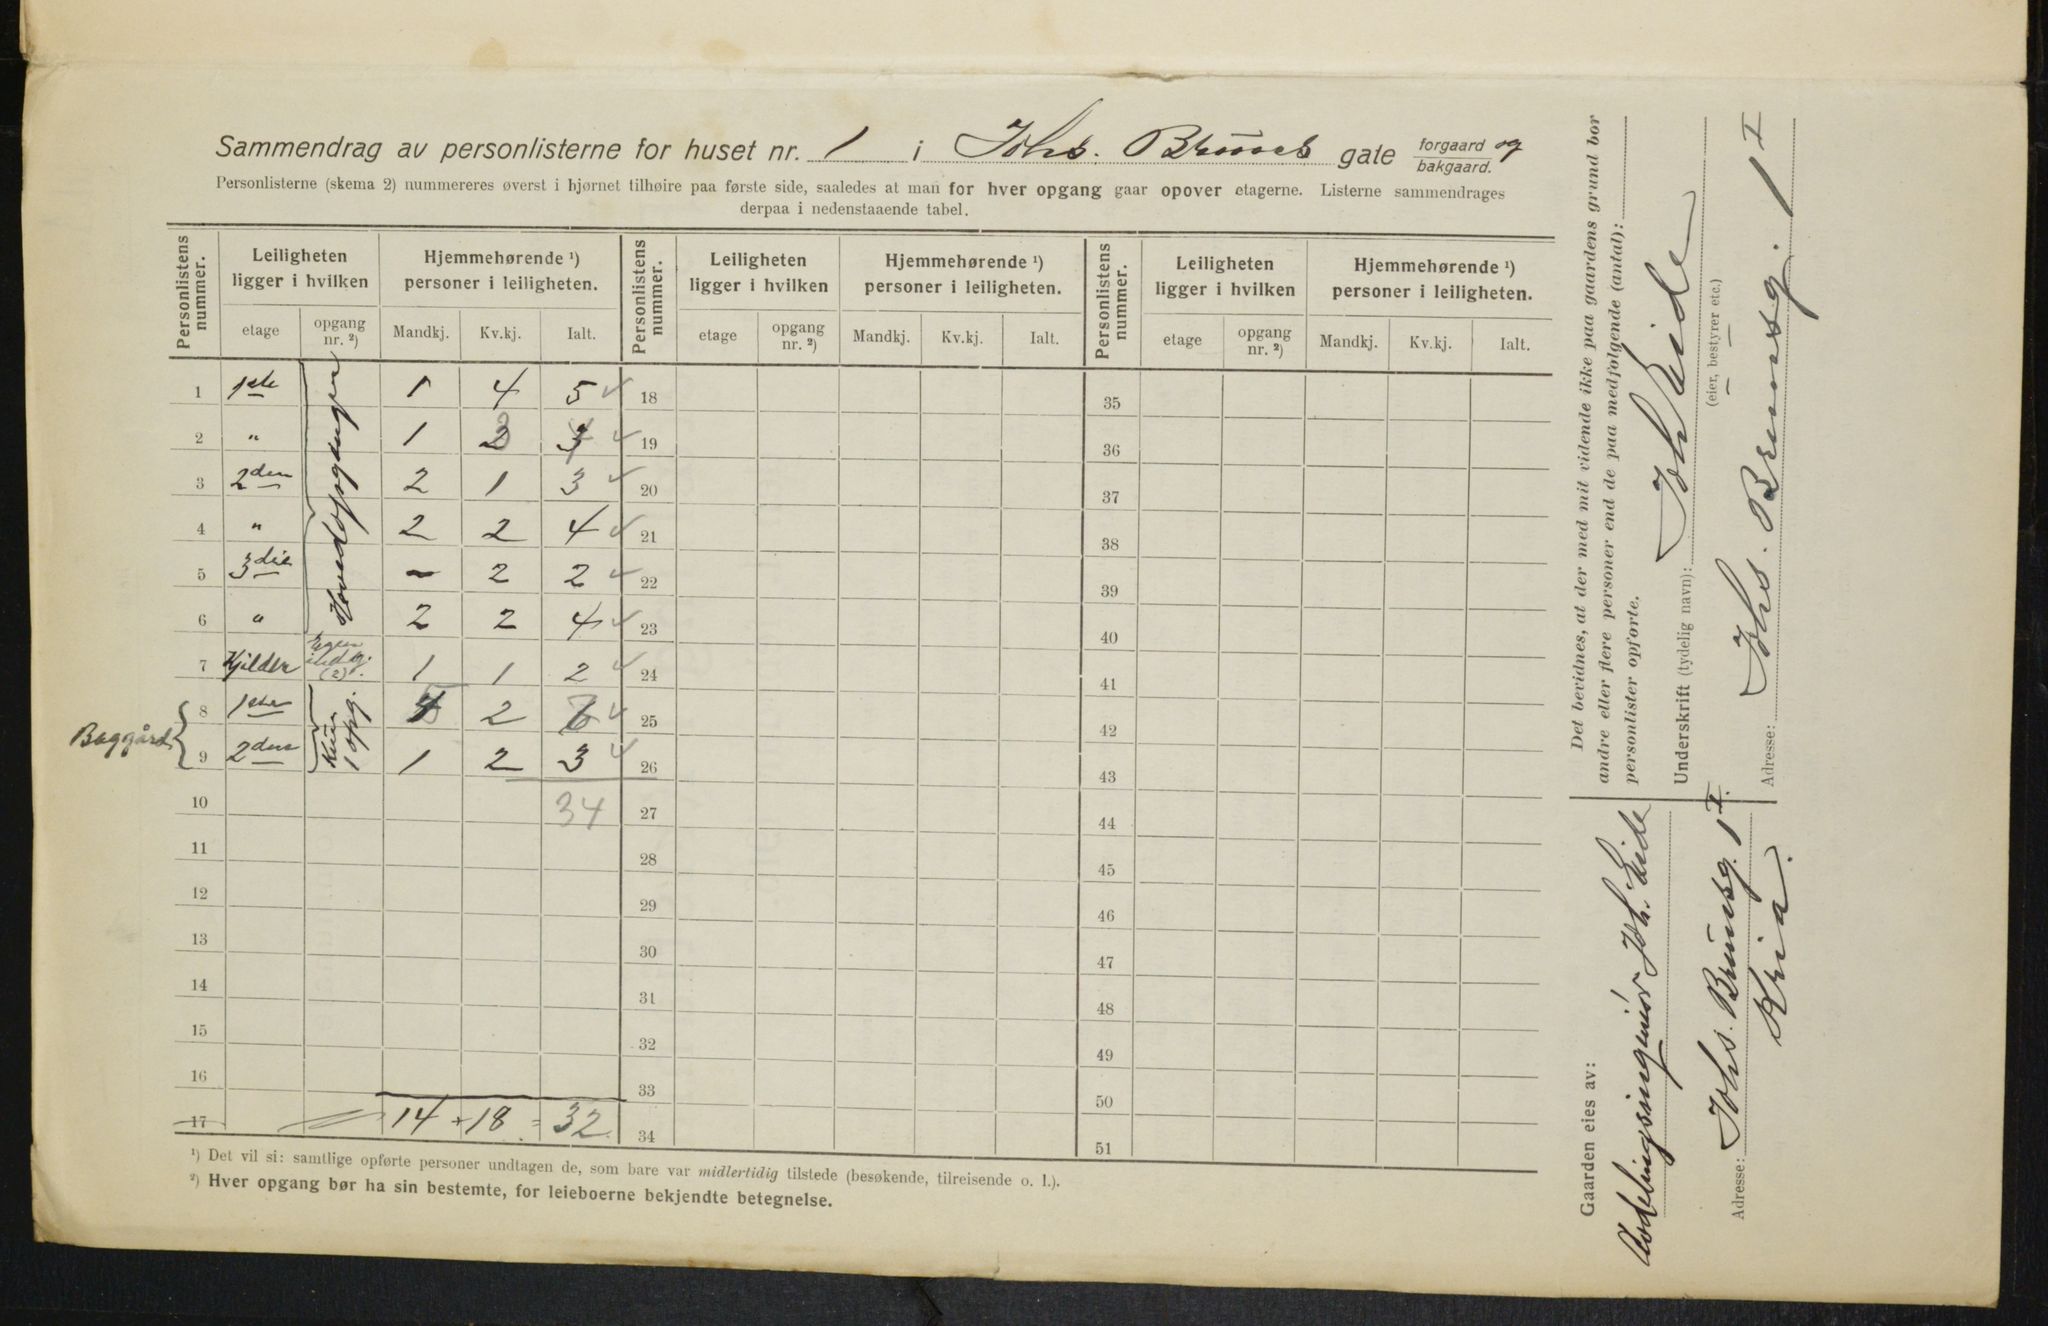 Sammendrag av personlisterne for huset nr. 1 i Johs. Bruuns gate forgaard og bakgaard.
Personlisterne (skema 2) nummereres øverst i hjørnet tilhøire paa første side, saaledes at man for hver opgang gaar opover etagerne. Listerne sammendrages
derpaa i nedenstaaende tabel.
Personlistens nummer. Leiligheten ligger i hvilken Hjemmehørende ¹) personer i leiligheten. Personlistens nummer. Leiligheten ligger i hvilken Hjemmehørende ¹) personer i leiligheten. Personlistens nummer. Leiligheten ligger i hvilken Hjemmehørende ¹) personer i leiligheten.
etage opgang nr. ²) Mandkj. Kv.kj. Ialt. etage opgang nr. ²) Mandkj. Kv.kj. Ialt. etage opgang nr. ²) Mandkj. Kv.kj. Ialt.
Hovedopgangen
1 1ste 1 4 5 18 35
2 " 1 3 19 36
3 2den 2 1 3 20 37
4 " 2 2 4 21 38
5 3die - 2 2 22 39
6 " 2 2 4 23 40
7 Kjelder Egen indg. (2) 1 1 2 24 41
Baggård
Kun 1 opg.
8 1ste 5 2 7 25 42
9 2den 1 2 3 26 43
10 34 27 44
11 28 45
12 29 46
13 30 47
14 31 48
15 32 49
16 33 50
17 14 + 18 = 32 34 51
¹) Det vil si: samtlige opførte personer undtagen de, som bare var midlertidig tilstede (besøkende, tilreisende o. l.).
²) Hver opgang bør ha sin bestemte, for leieboerne bekjendte betegnelse.
Det bevidnes, at der med mit vidende ikke paa gaardens grund bor
andre eller flere personer end de paa medfølgende (antal):
personlister opførte.
Underskrift (tydelig navn): Joh Eide
(eier, bestyrer etc.)
Adresse: Johs. Brunsg. 1 I
Gaarden eies av:
Avdelingsingeniør Joh. Eide
Adresse: Johs. Bruunsg. 1 I.
Kria.